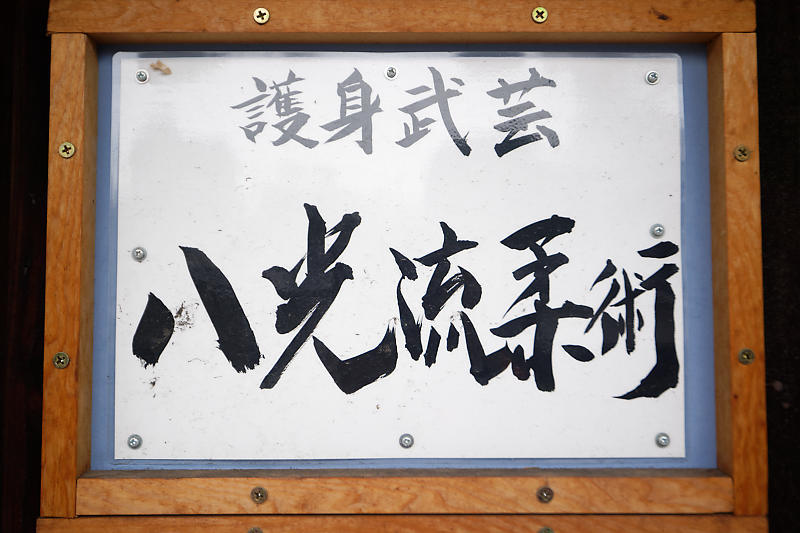 護身武芸
八光流柔術